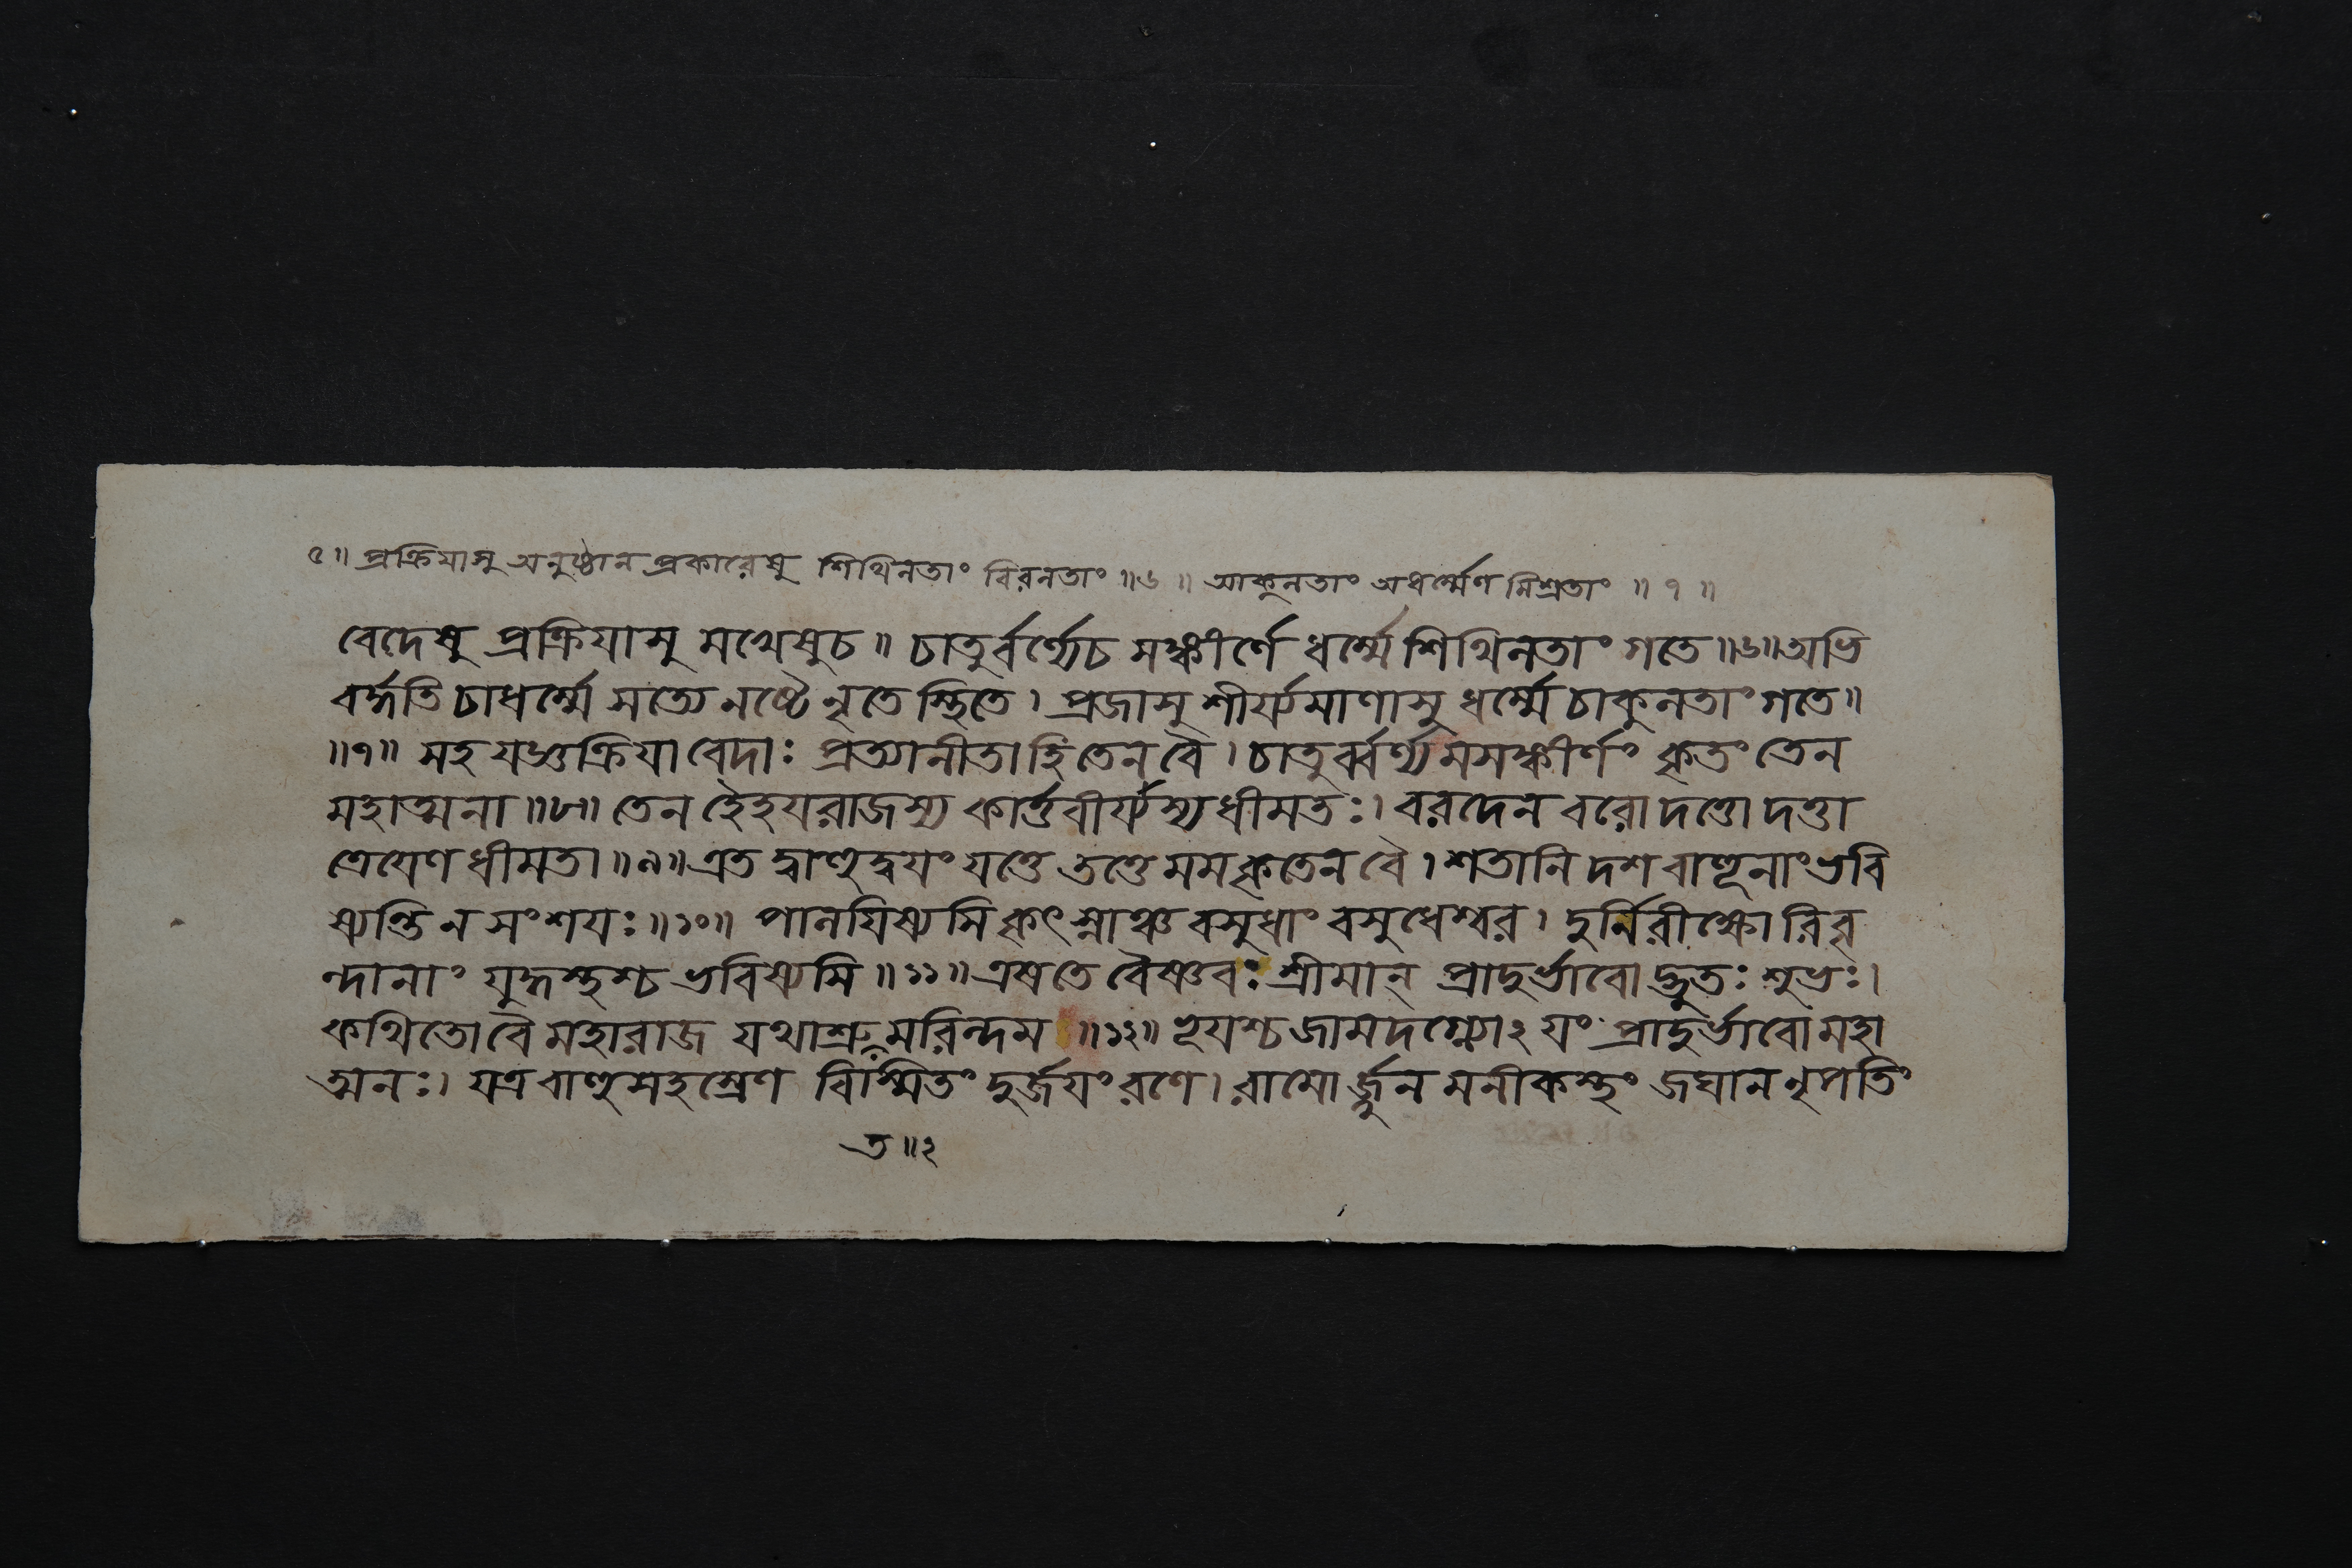 ৫॥ প্রক্রিযাসু অনুষ্ঠান প্রকারেষু শিথিলতাং বিরলতাং ॥৬॥ আকুলতাং অধর্ম্মেণ মিশ্রতাং ॥৭॥
বেদেষু প্রক্রিযাসু মখেষুচ॥ চাতুর্বর্ণ্যেচ সঙ্কীর্ণে ধর্ম্মে শিথিলতাং গতে॥৬॥অভি
বর্দ্ধতি চাধর্ম্মে সত্যে নষ্টেঽনৃতে স্থিতে। প্রজাসু শীর্য্যমাণাসু ধর্ম্মে চাকুলতাং গতে॥
॥৭॥ সহ যজ্ঞক্রিযা বেদাঃ প্রত্যানীতা হি তেন বৈ। চাতুর্ব্বর্ণ্যমসঙ্কীর্ণং কৃতং তেন
মহাত্মনা॥৮॥ তেন হৈহযরাজস্য কার্ত্তবীর্য্যস্য ধীমতঃ। বরদেন বরো দত্তো দত্তা
ত্রেযেণ ধীমতা॥৯॥এতদ্বাহুদ্বযং যত্তে তত্তে মম কৃতেন বৈ। শতানি দশ বাহূনাং ভবি
ষ্যন্তি ন সংশযঃ॥১০॥ পালযিষ্যসি কৃৎস্নাঞ্চ বসুধাং বসুধেশ্বর। দুর্নিরীক্ষ্যোরিবৃ
ন্দানাং যুদ্ধস্থশ্চ ভবিষ্যসি॥১১॥এষ তে বৈষ্ণবঃ শ্রীমান্ প্রাদুর্ভাবোদ্ভুতঃ শুভঃ।
কথিতো বৈ মহারাজ যথাশ্রুমরিন্দম॥১২॥ ভূযশ্চ জামদগ্ন্যোঽযং প্রাদুর্ভাবো মহা
ত্মনঃ। যত্র বাহুসহস্রেণ বিস্মিতং দুর্জযং রণে। রামোর্জ্জুনমনীকস্থং জঘান নৃপতিং
ত॥২